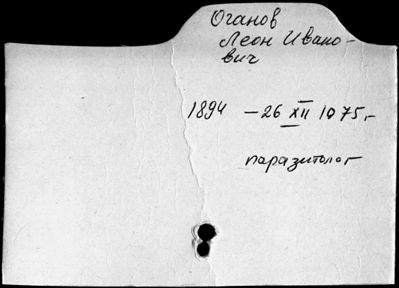 Оганов
Леон Ивано-
вич
1894 – 26 XII 1975,-
паразитолог